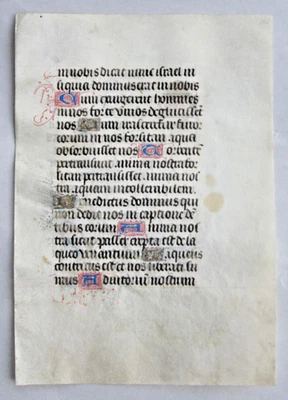 in nobis dicat nunc israel ni
si quia dominus erat in nobis
Cum exurgerent homines
in nos forte vivos deglutissent
nos Cum irasceretur furor
eorum in nos forsitan aqua
obsorbuisset nos Torrentem
pertransivit anima nostra for
sitan pertransisset anima nos
tra aquam intollerabilem
Benedictus dominus qui
non dedit nos in captione den
tibus eorum Anima nos
tra sicut passer erepta est de la
queo venantium Laqueus
contritus est et nos liberati su
mus Adiutorium nostrum